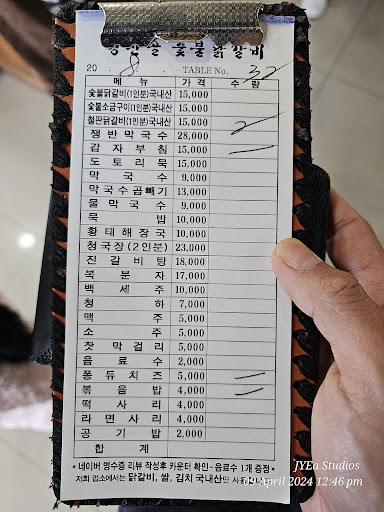 숯불닭갈비
20 8 TABLE No. 32
메뉴 가격 수량
숯불닭갈비(1인분)국내산 15,000
숯불소금구이(1인분)국내산 15,000
철판닭갈비(1인분)국내산 15,000 2
쟁반막국수 28,000
감자부침 15,000 一
도토리묵 15,000
막국수 9,000
막국수곱빼기 13,000
물막국수 9,000
묵밥 10,000
황태해장국 10,000
청국장(2인분) 23,000
진갈비탕 18,000
복분자 17,000
백세주 10,000
청하 7,000
맥주 5,000
소주 5,000
잣막걸리 5,000
음료수 2,000
퐁듀치즈 5,000 一
볶음밥 4,000 二
떡사리 4,000
라면사리 4,000
공기밥 2,000
합계
• 네이버 영수증 리뷰 작성후 카운터 확인-음료수 1개 증정 •
저희 업소에서는 닭갈비, 쌀, 김치 국내산만
JYEa Studios
09 April 2024 12:46 pm